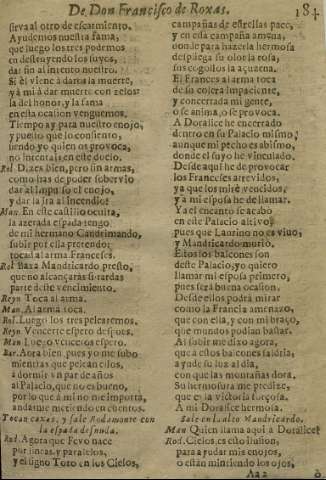 De Don Francisco de Roxas. 184
sirva al otro de escarmiento.
Ayudemos nuestra fama,
que luego los tres podemos
en destruyendo los suyos,
dar fin al intento nuestro.
Si èl viene à darla la muerte,
yà mi à dar muerte con zelos:
la del honor, y la fama
en esta ocasion venguemos.
Tiempo ay para nuestro enojo,
y puesto que lo consiento,
siendo yo quien os provoca,
no intentais en este duelo.
Rod. Dizes bien, pero sin armas,
como has de poder sobervio
dar al impulso el enojo,
y dar la ira al incendio?
Man. En este castillo oculta,
la azerada espada tengo
de mi hermano Gandrimando,
subir por ella pretendo;
toca al arma Franceses.
Rol. Baxa Mandricardo presto,
que no alcançaràs si tardas
parte deste vencimiento.
Reyn Toca al arma.
Man. Al arma toca.
Rol. Luego los tres pelearemos.
Reyn. Vencerte espero despues.
Man Luego venceros espero.
Bar. Aora bien, pues yo me subo
mientras que pelean ellos,
à dormir vn par de años
al Palacio, que no es bueno,
por lo que à mi no me importa,
andarme metiendo en cuentos.
Tocan caxas, y sale Rodamonte con
la espada desnuda.
Rod. Agora que Febo nace
por lineas, y paralelos,
y el signo Toro en los Cielos,
campañas de estrellas pace,
y en cada campaña amena,
donde para hazerla hermosa
despliega su olor la rosa,
sus cogollos la açucena.
El Frances al arma toca
de su colera impaciente,
y concertada mi gente,
o se anima, o se provoca.
A Doralice he encerrado
dentro en su Palacio mismo,
aunque mi pecho es abismo,
donde el suyo he vinculado.
Desde aqui he de provocar
los Franceses atrevidos,
ya que los mirè vencidos,
y à mi esposa he de llamar.
Ya el encanto se acabò
en este Palacio altivo,
pues que Laurino no es vivo,
y Mandricardo muriò.
Estos los balcones son
deste Palacio, yo quiero
llamar mi esposa primero,
pues serà buena ocasion.
Desde ellos podrà mirar
como la Francia amenazo,
que con ella, y con mi braço,
que mundos podian bastar.
Al subir me dixo agora,
que à estos balcones saldria,
y dudè su luz al dia,
con que las montañas dora.
Su hermosura me predize,
que es la victoria forçosa.
A mi Doralice hermosa.
Sale en lo alto Mandricardo.
Man Quien llama aqui à Doralice?
Rod. Cielos, es esto ilusion,
para ayudar mis enojos,
o estàn mintiendo los ojos,
Aa 2